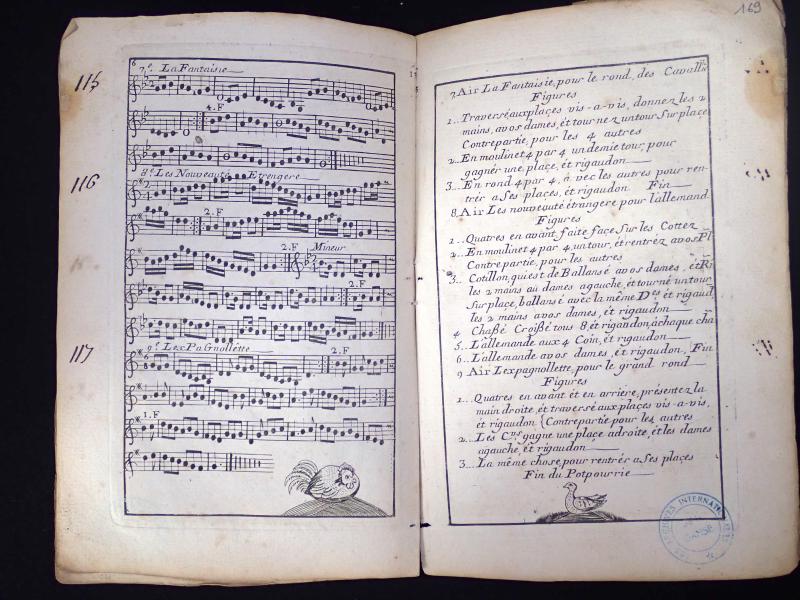 115
116
117
6
7.e La Fantaisie
4.F
8.e Les Nouveauté Etrangere
2.F
2.F Mineur
2.F
9.e LexPaGnollette
2.F
1.F
169
7 Air La Fantaisie, pour le rond, des Cavall
Figures
1.. Traversé aux plaçes vis-a-vis, donnez les 2
mains, a vos dames, ét tournez un tour Sur plaçe
Contrepartie, pour les 4 autres
2.. En moulinet 4 par 4 un demie tour, pour
gagner une, plaçe, ét rigaudon
3... En rond 4 par 4, à vec les autres pour ren-
trér a Ses plaçes, ét rigaudon Fin
8 Air Les nouveauté étrangere pour l'allemand
Figures
1.. Quatres en avant, faite façe Sur les Cottez
2.. En moulinet 4 par 4, un tour, ét rentrez a vos Pl
Contrepartie, pour les autres
3.. Cotillon, qui est de Ballansé a vos dames, ét Ri
les 2 mains au dames agauche, ét tourné un tour
Sur plaçe, ballansé avec la même Des ét rigaud
les 2 mains a vos dames, ét rigaud
4 Chaßé Croißé tous 8, ét rigaudon, àchaque cha
5.. L'allemande aux 4 Coin, ét rigaudon
6.. L'allemande a vos dames, ét rigaudon, Fin
9 Air Lexpagnollette, pour le grand rond
Figures
1... Quatres en avant ét en arriére, présentez la
main droite, ét traversé aux plaçes vis-a-vis,
ét rigaudon (Contrepartie pour les autres
2... Les Cns gagne une plaçe adroite, ét les dames
agauche, ét rigaudon
3... La même chose pour rentrér a Ses plaçes
Fin du Potpourrie
ARCHIVES INTERNATIONALES
DANSE